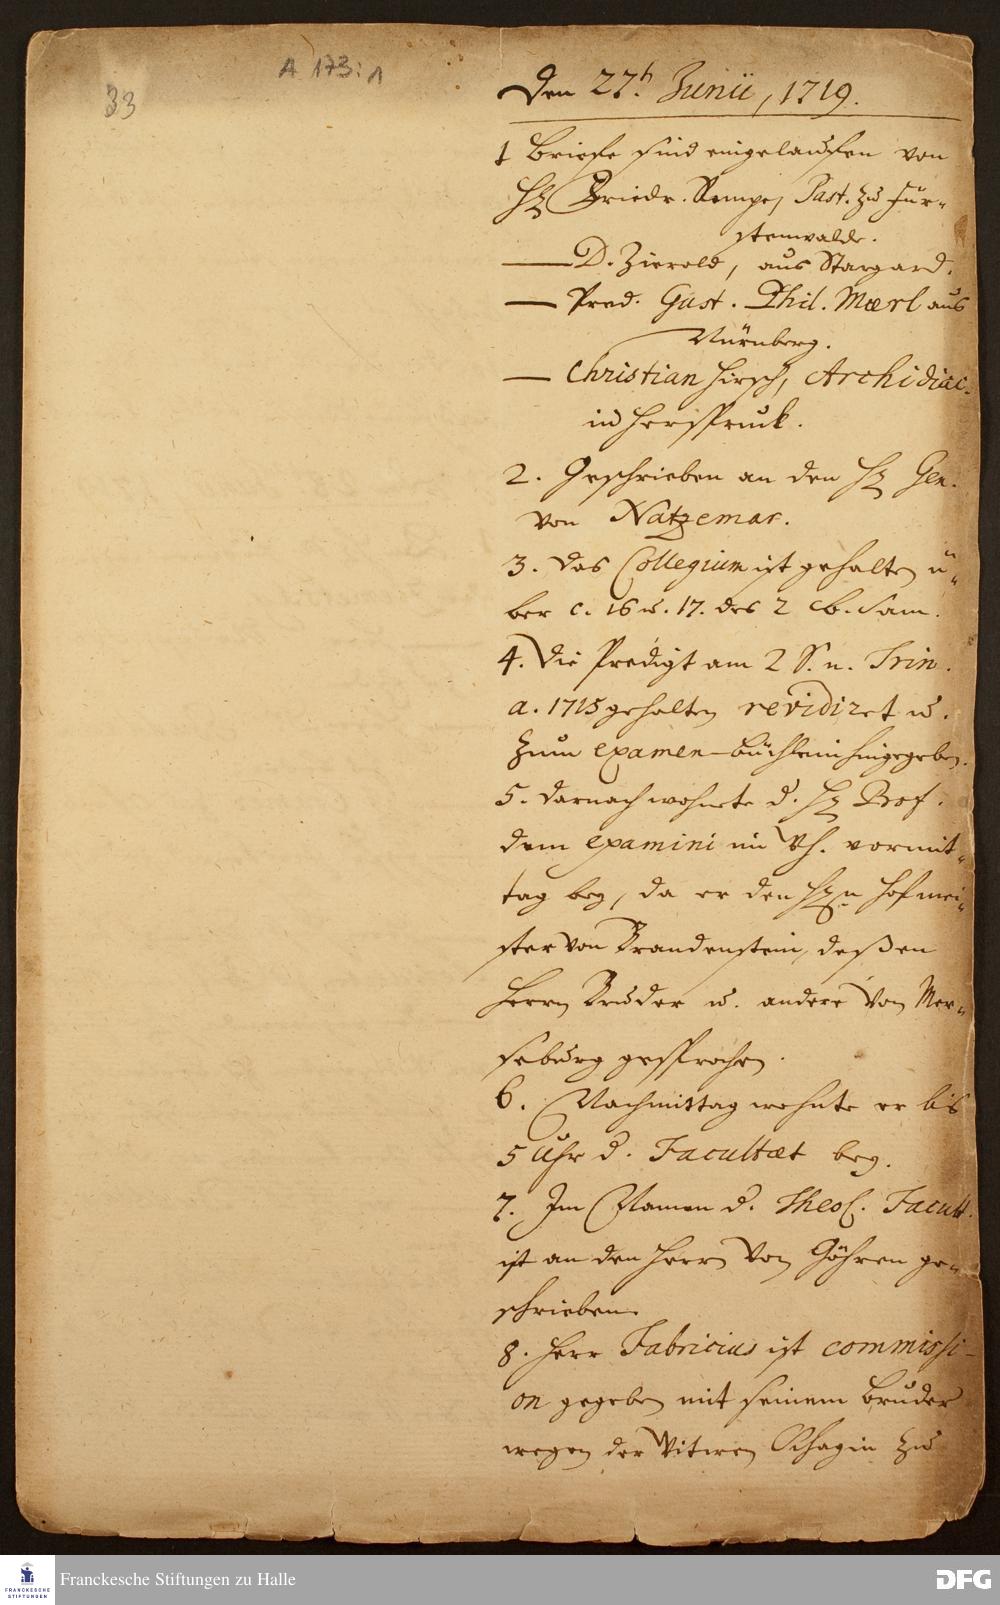 A 173:1
33
Den 27t. Junii, 1719.
1 Briefe sind eingelauffen von
H. Friedr. Rampe, Past. zu Für-
stenwalde.
— D. Zierold, aus Stargard.
— Pred. Gust. Phil. Mœrl aus
Nürnberg.
— Christian Hirsch, Archidiac.
in Herspruck.
2. Geschrieben an den H. Gen.
von Natzemar.
3. Das Collegium ist gehalten ü-
ber c. 16 u. 17. des 2 b. Sam.
4. Die Predigt am 2 S. n. Trin.
a. 1715 gehalten revidiret u.
zum examen-büchlein hingegeben.
5. Darnach wohnete d. H. Prof.
dem examini im Wh. vormit-
tag bey, da er den Hn Hofmei-
ster von Brandenstein, deßen
Herrn Bruder u. andere von Mer-
seburg gesprochen.
6. Nachmittag wohnte er bis
5 Uhr d. Facultæt bey.
7. Im Namen d. Theol. Facult.
ist an den Herrn von Göhren ge-
schrieben.
8. Herr Fabricius ist commissi-
on gegeben mit seinem Bruder
wegen der Witwen zu
FRANCKESCHE
STIFTUNGEN
Franckesche Stiftungen zu Halle
DFG